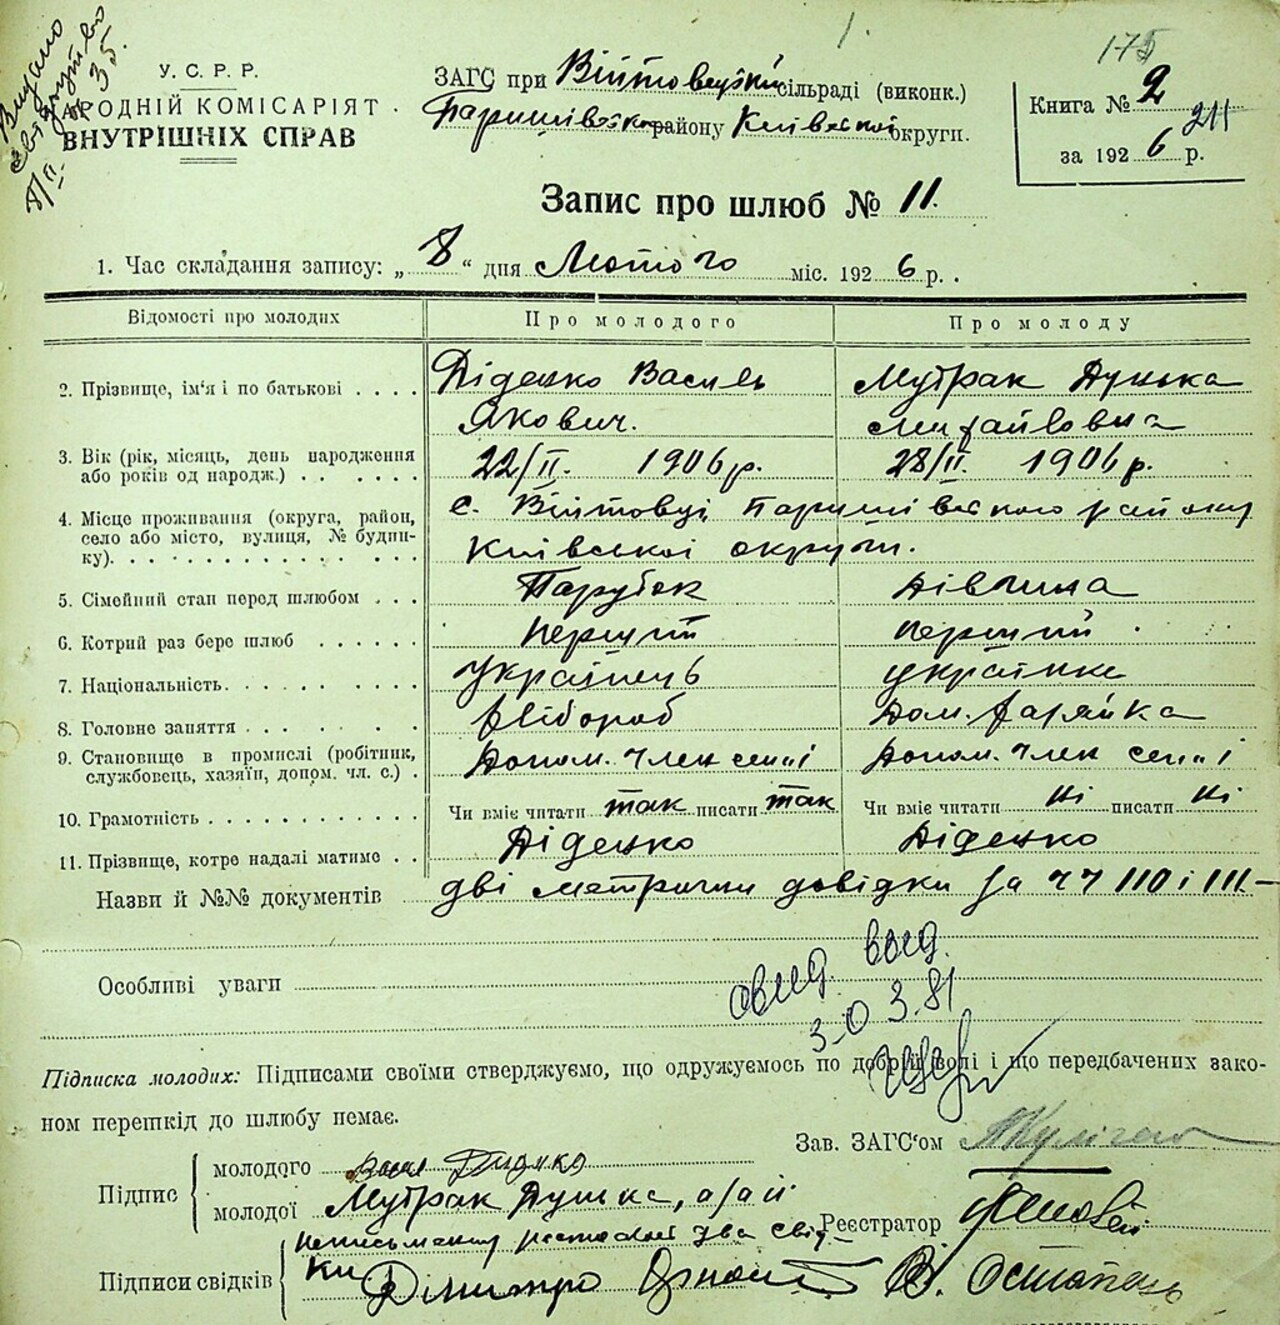 Видано
свідоцтво
35.
8/II
1.
175
У. С. Р. Р.
НАРОДНІЙ КОМІСАРІЯТ
ВНУТРІШНІХ СПРАВ
ЗАГС при Війтовецькій сільраді (виконк.)
Баришівського району Київської округи.
Книга № 2
211
за 1926 р.
Запис про шлюб № 11.
1. Час складання запису: „ 8 “ дня Лютого міс. 1926 р. .
Відомості про молодих Про молодого Про молоду
2. Прізвище, ім'я і по батькові . . . . Діденко Василь Якович. Мутрак Дунька Михайловна
3. Вік (рік, місяць, день народження
або років од народж.) . . . . . . 22/II. 1906 р. 28/II. 1906 р.
4. Місце проживання (округа, район, с. Війтовці, Баришівського району
село або місто, вулиця, № будин- Київської округи.
ку). . . . . . . . . . . . . .
5. Сімейний стан перед шлюбом . . . Парубок Дівчина
6. Котрий раз бере шлюб . . . . . . перший перший
7. Національність. . . . . . . . . Українець українка
8. Головне заняття . . . . . . . Хлібороб Дом. хазяйка
9. Становище в промислі (робітник,
службовець, хазяїн, допом. чл. с.) . Допом. член сем'ї Допом. член сем'ї
10. Грамотність . . . . . . . . . . . . Чи вміє читати так писати так Чи вміє читати ні писати ні
11. Прізвище, котре надалі матиме . . Діденко Діденко
Назви й №№ документів дві метрични довідки за чч 110 і 111.
Особливі уваги
3.03.81
Підписка молодих: Підписами своїми стверджуємо, що одружуємось по добрій волі і що передбачених зако-
ном перешкід до шлюбу немає.
Зав. ЗАГС'ом
Підпис
молодого
молодої Мутрак Дунька, а за її
Реєстратор
неписьменну розписались два свід-
ки
Підписи свідків Дмитро В. Остапець